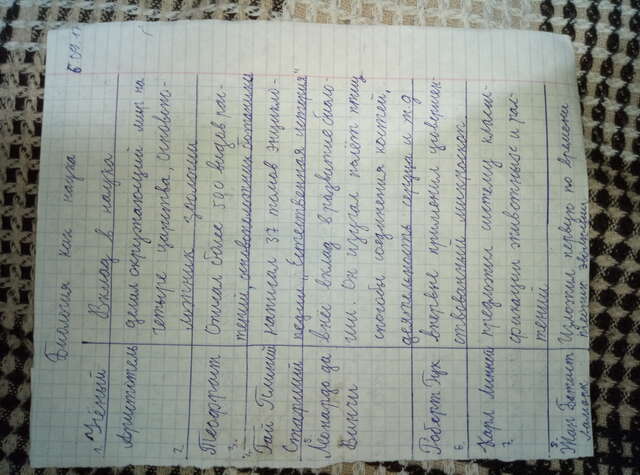 6 09
Биология как наука
Учёный Вклад в науку
1. Аристотель делил окружающий мир на
четыре царства, Основопо-
ложник зоологии
2. Теофраст Описал более 500 видов рас-
тений, основоположник ботаники
Гай Плиний написал 37 томов энцикло-
Старший педии "Естественная история"
Леонардо да внес вклад в развитие биоло-
Винчи гии. Он изучал полёт птиц,
способы соединения костей,
деятельность сердца и т д
Роберт Гук впервые применил усовершен-
6. ствованный микроскоп.
Карл Линней предложил систему класси-
7. фикации животных и рас-
тений
8. Жан Батист Изложил первую по времени
Ламарк теорию эволюции